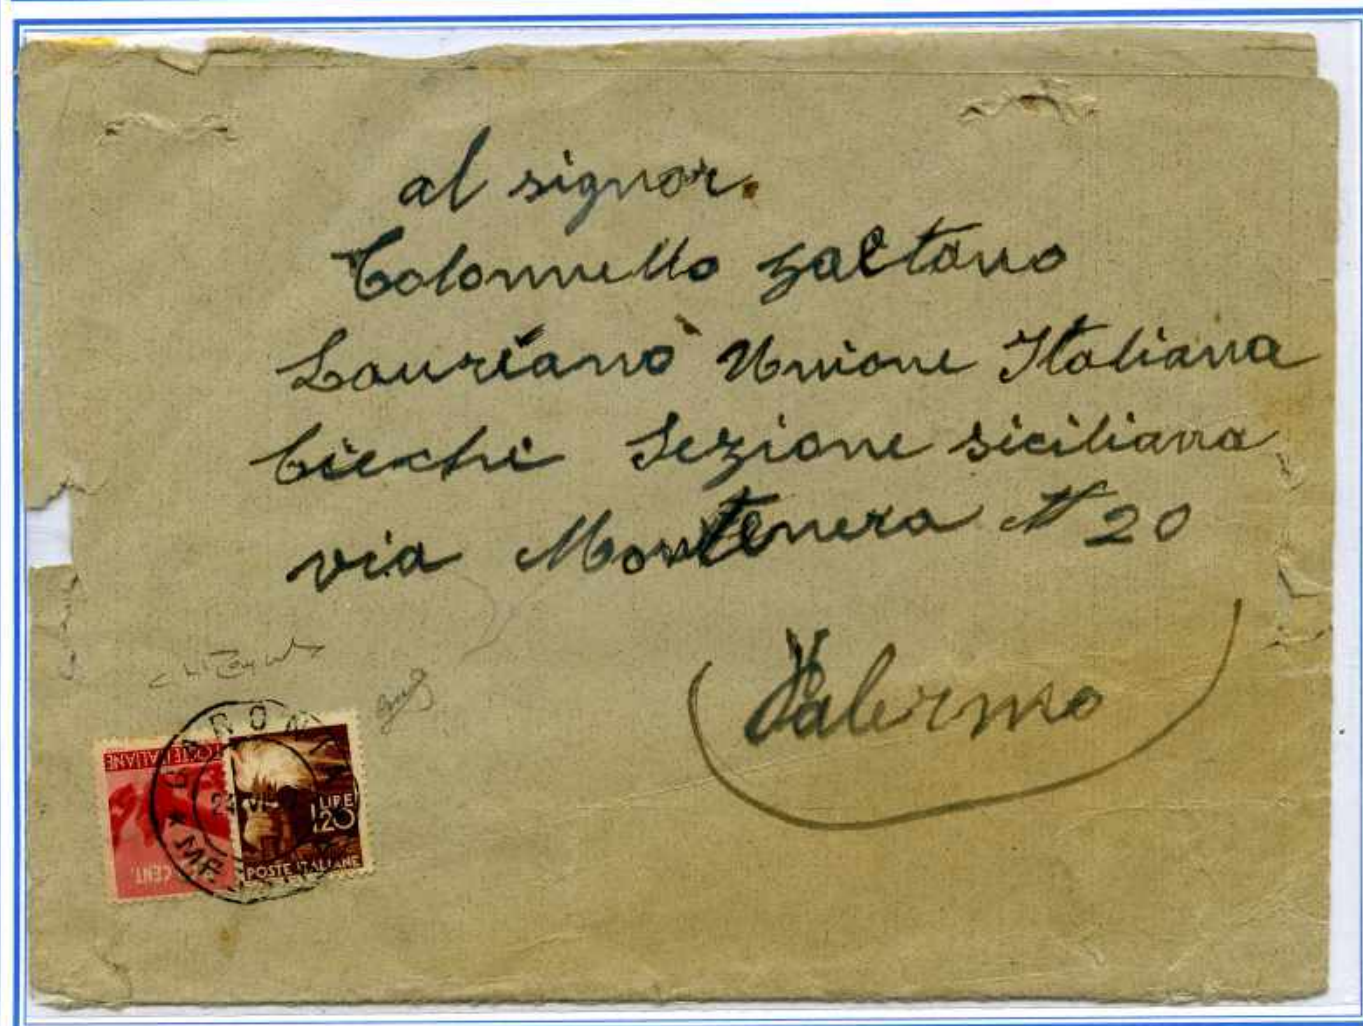 al signor.
Colonnello Gaetano
Lauriano Unione Italiana
Ciechi Sezione siciliana
via Montenera N 20
Palermo
CARONIA
24 VI
* ME
POSTE ITALIANE
CENT.
LIRE
1,20
POSTE ITALIANE